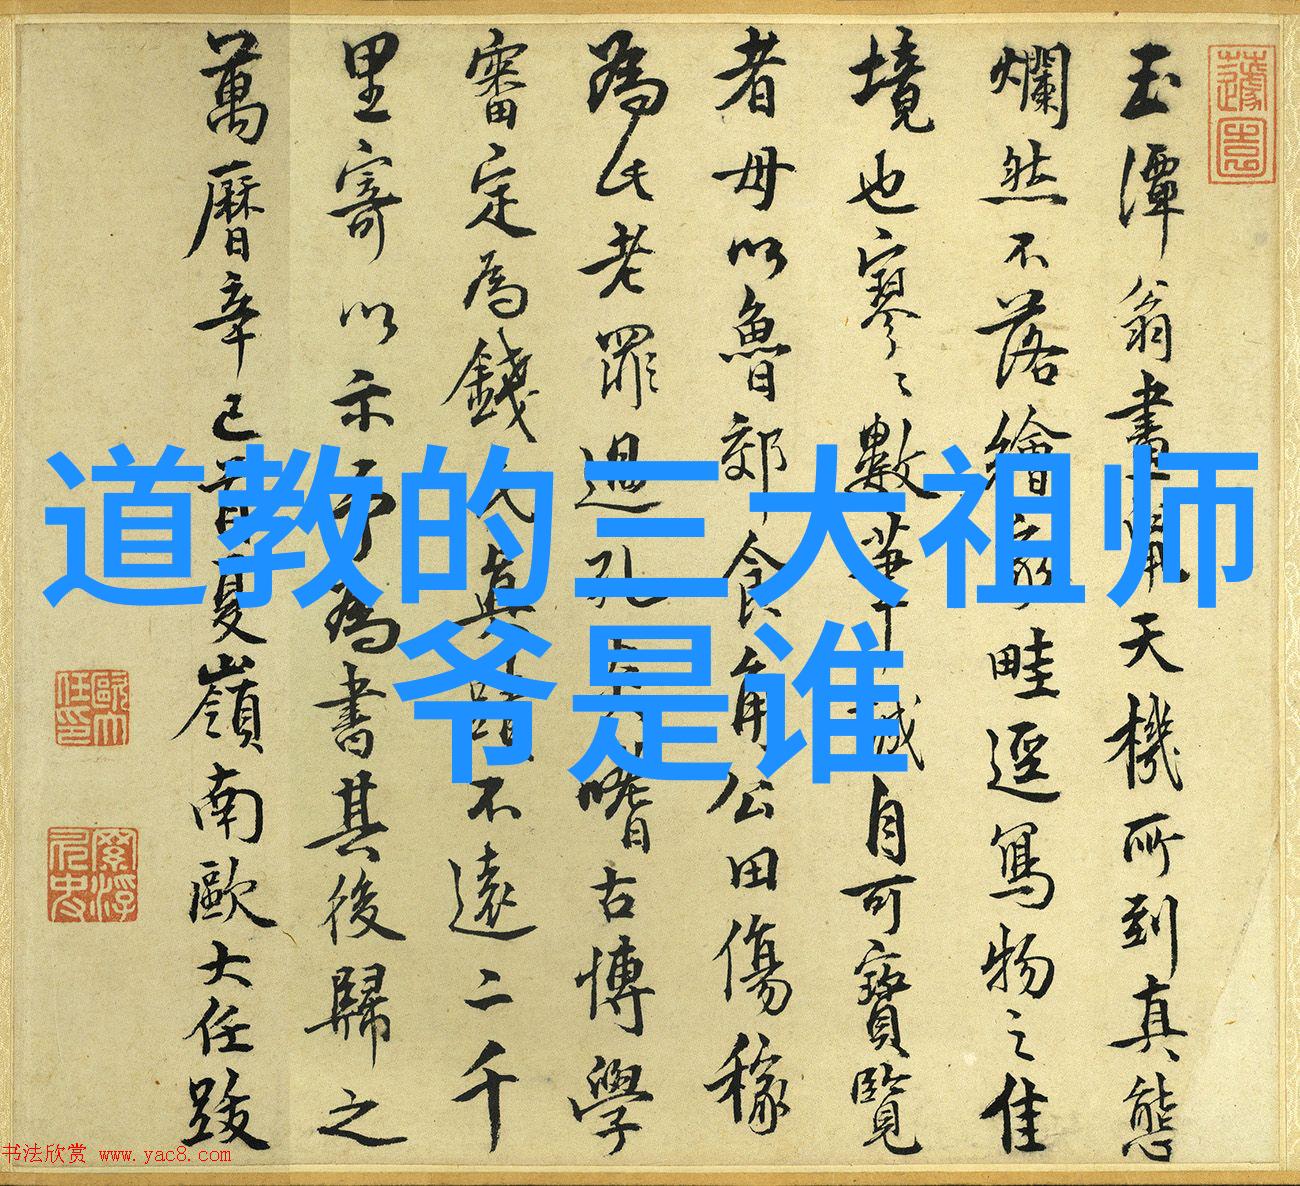 道教的三大祖师
爷是谁
玉潭翁畫天機所到真態
爛然不落繪家畦逕寫物之佳
境也寥〻數筆誠自可寶覽
者毋以魯郊食角公田傷稼
為此老罪過孔嗜古博學
審定為錢氏真蹟不遠二千
里寄以示予為書其後歸之
萬曆辛巳首夏嶺南歐大任跋
歐大任印
书法欣赏 www.yac8.com